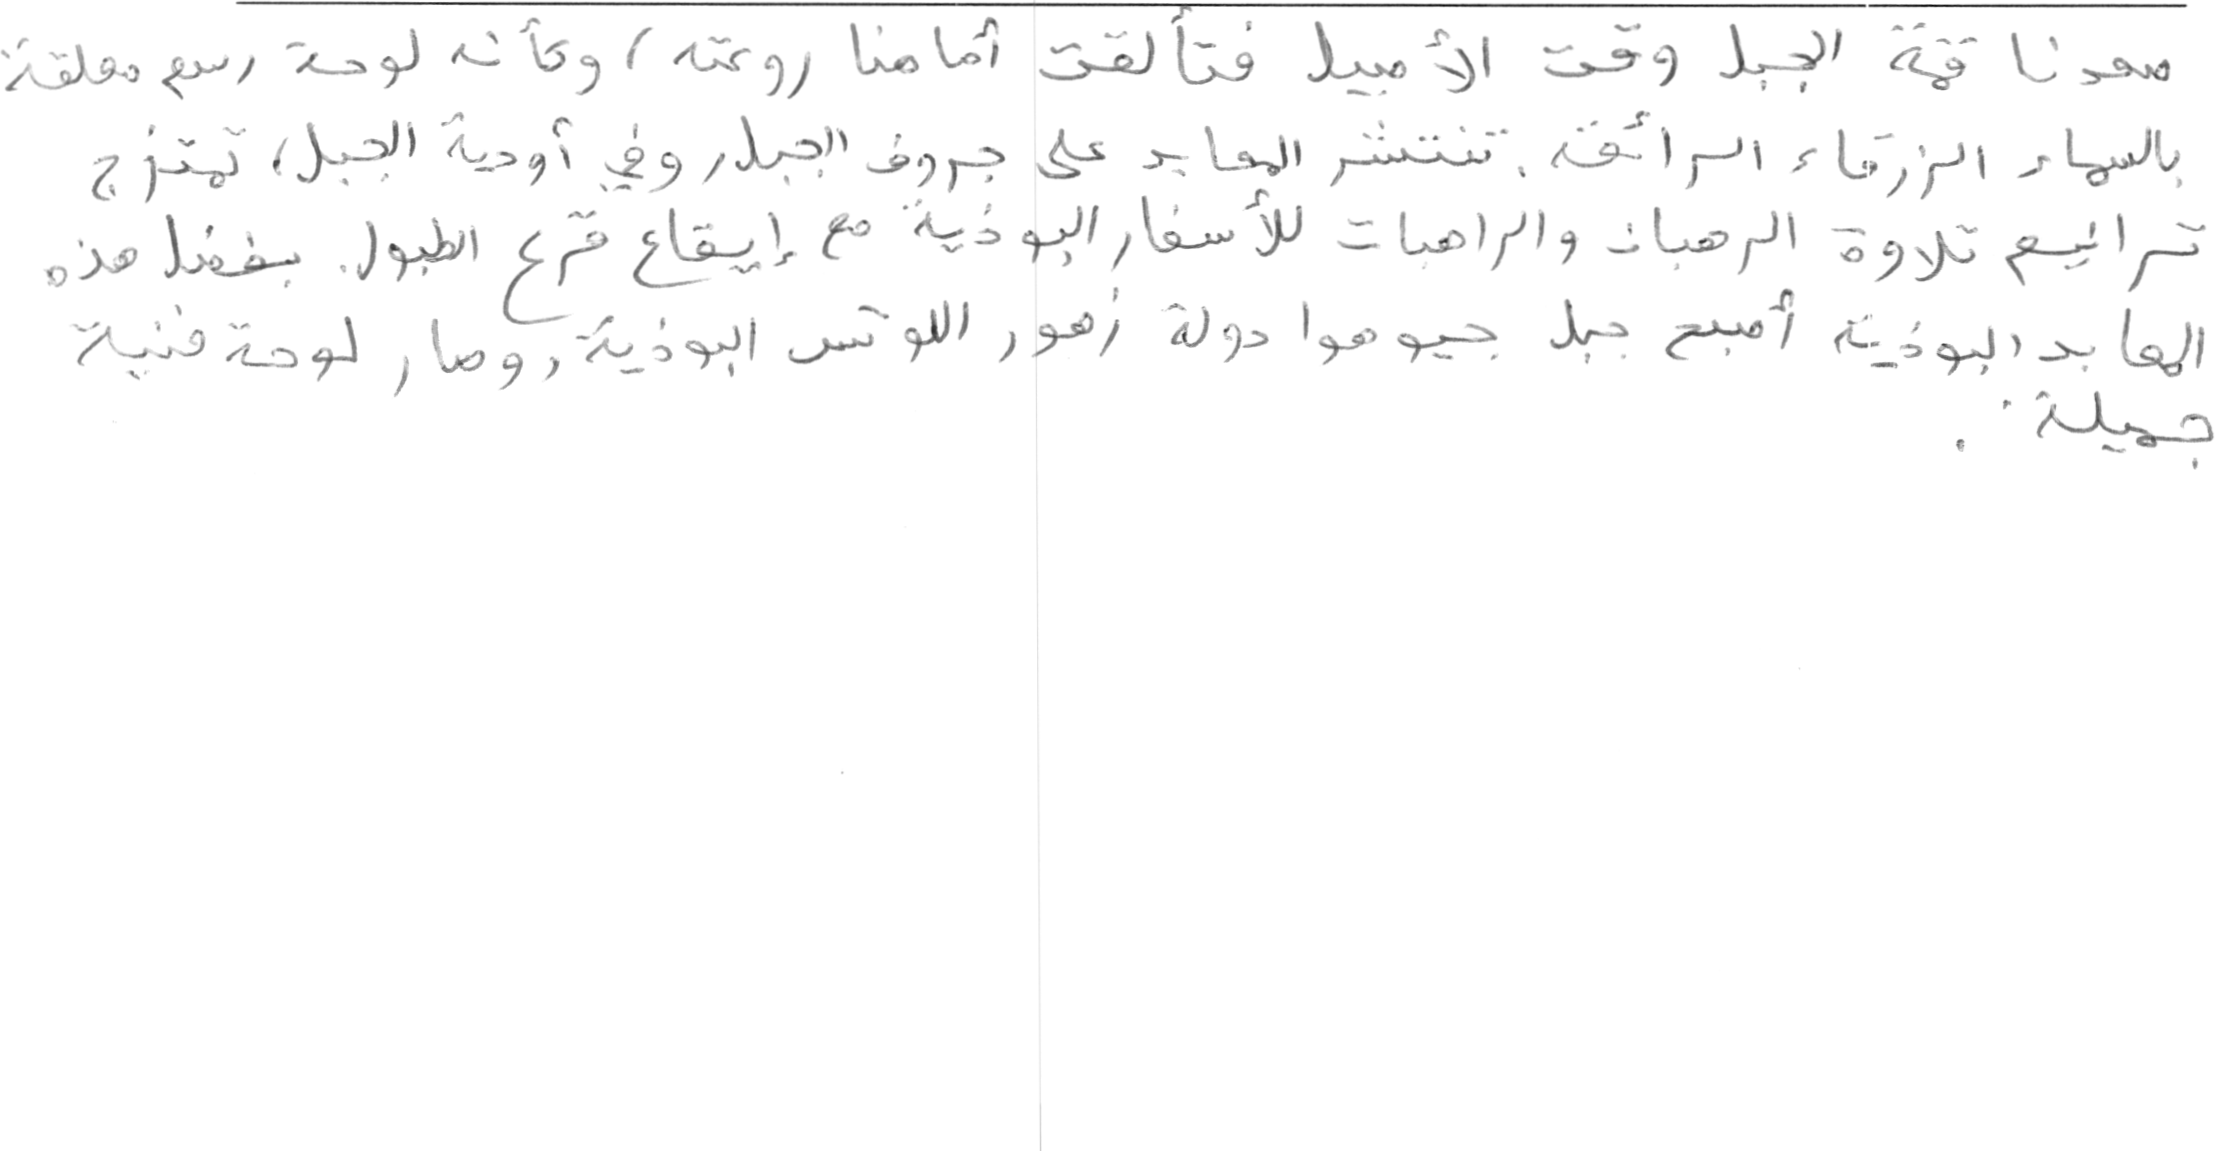 صعدنا قمة الجبل وقت الأصيل فتألقت أمامنا روعته، وكأنه لوحة رسم معلقة
بالسماء الزرقاء الرائقة. تنتشر المعابد على جروف الجبل، وفي أودية الجبل، تمتزج
ترانيم تلاوة الرهبان والراهبات للأسفار البوذية مع إيقاع قرع الطبول. بفضل هذه
المعابد البوذية أصبح جبل جيوهوا دولة زهور اللوتس البوذية، وصار لوحة فنية
جميلة.